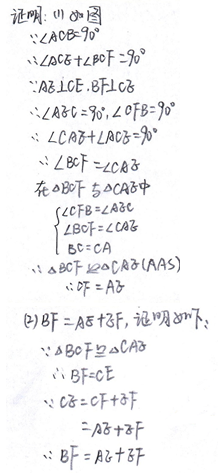 证明:(1)如图
∵∠ACB=90°
∴∠ACE+∠BCF=90°
∵AE⊥CE,BF⊥CE
∴∠AEC=90°,∠CFB=90°
∴∠CAE+∠ACE=90°
∴∠BCF=∠CAE
在△BCF与△CAE中
∠CFB=∠AEC
∠BCF=∠CAE
BC=CA
∴△BCF≌△CAE(AAS)
∴CF=AE
(2)BF=AE+EF,证明如下:
∵△BCF≌△CAE
∴BF=CE
∵CE=CF+EF
=AE+EF
∴BF=AE+EF